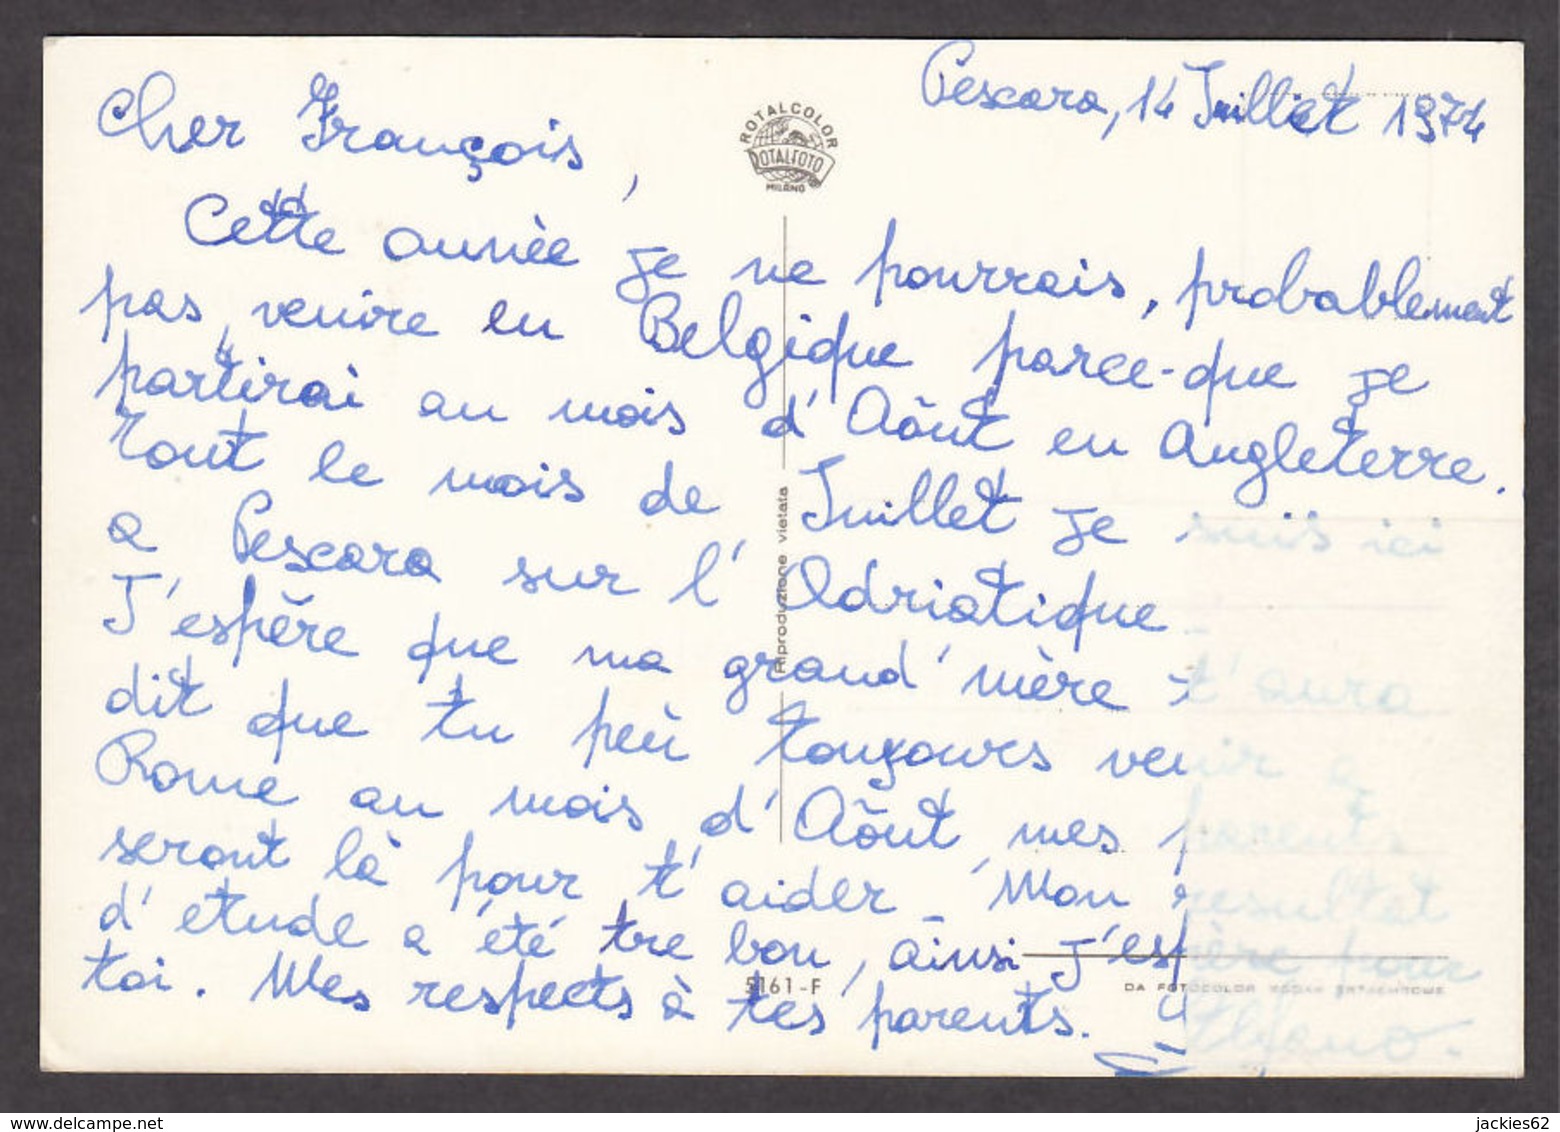 Pescara, 14 Juillet 1974
Cher François,
ROTALCOLOR
ROTALFOTO
MILANO
Cette annèe je ne pourrais, probablement
pas, venire en Belgique parce-que je
partirai au mois d'Aôut en Angleterre.
Tout le mois de Juillet je suis ici
a Pescara sur l'Adriatique.
J'espère que ma grand'mère t'aura
dit que tu peù toujours venir a
Rome au mois d'Aôut, mes parents
seront là pour t'aider. Mon resultat
d'etude a été tre bon, ainsi j'espère pour
toi. Mes respects à tes parents.
Riproduzione vietata
5161-F
DA FOTOCOLOR KODAK EKTACHROME
jackies62